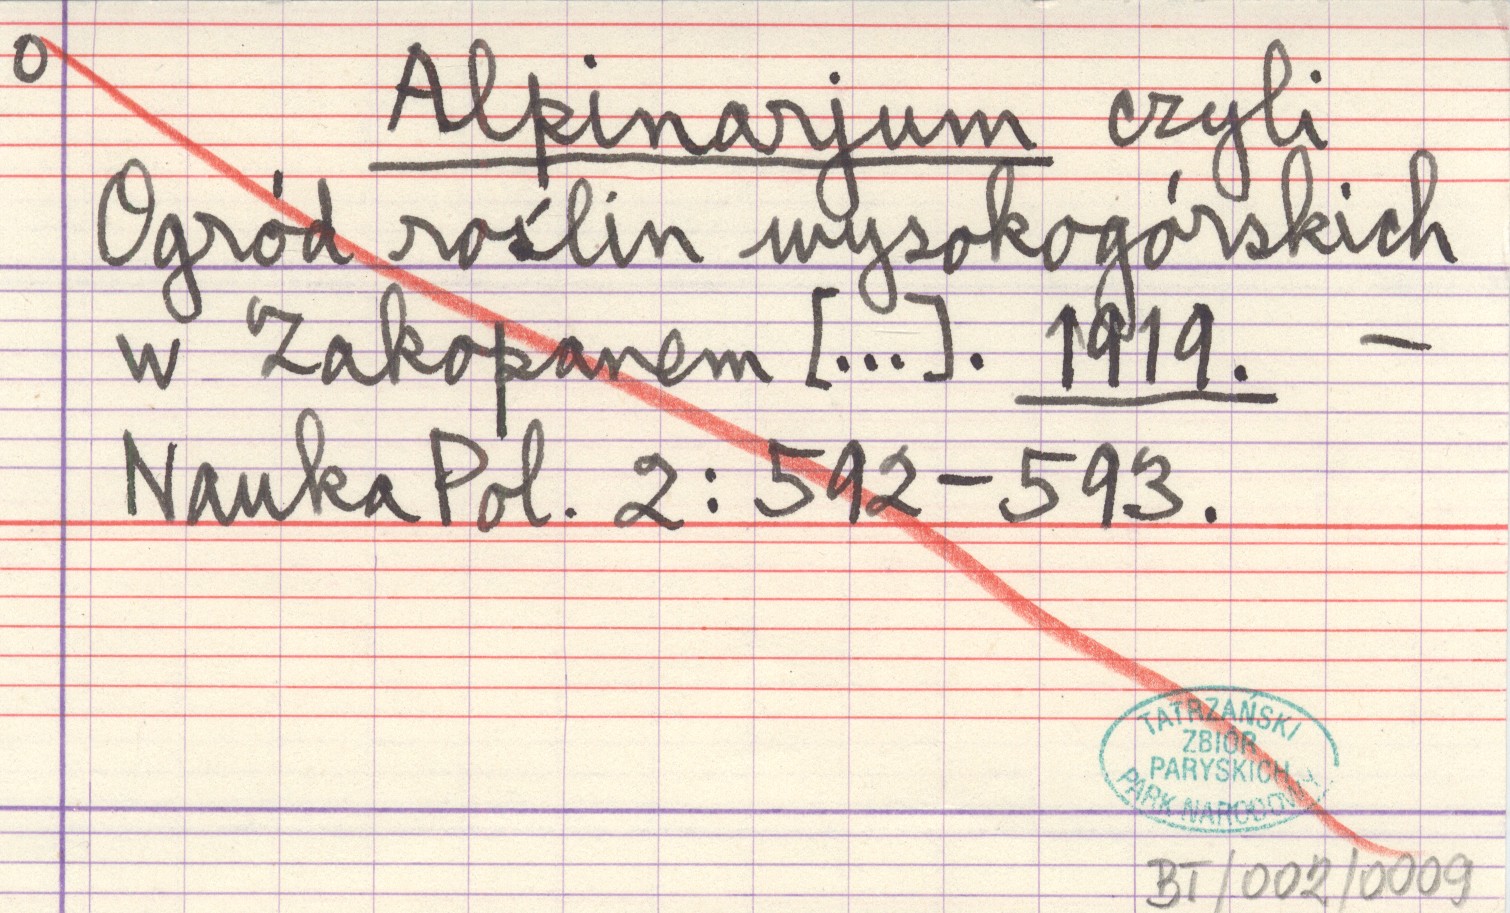 0
Alpinarjum czyli
Ogród roślin wysokogórskich
w Zakopanem [...]. 1919. –
Nauka Pol. 2: 592–593.
TATRZAŃSKI
ZBIÓR
PARYSKICH
PARK NARODOWY
BT/002/0009